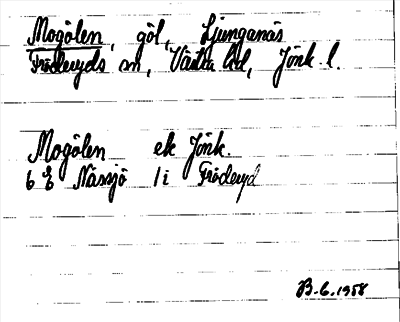 Mogölen, göl, Ljunganäs
Fröderyds sn, Västra hd, Jönk. l.
Mogölen ek Jönk.
6 E Nässjö 1 i Fröderyd
B-6.1958